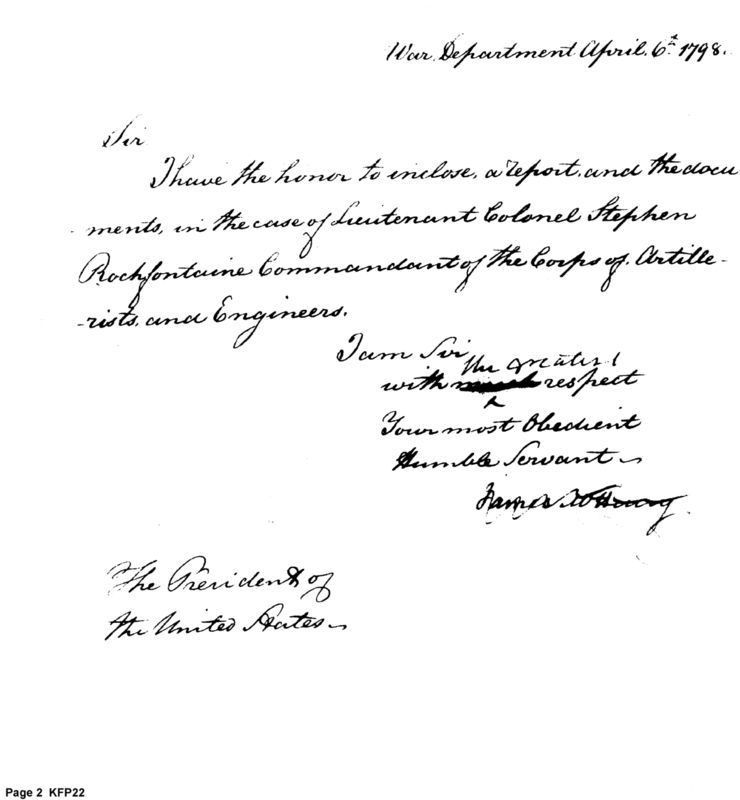 War Department April. 6th 1798.
Sir
I have the honor to inclose, a report, and the docu
ments, in the case of Lieutenant Colonel Stephen
Rochfontaine Commandant of the Corps of Artille-
-rists, and Engineers.
I am Sir
the greatest
with much respect
Your most Obedient
Humble Servant
James McHenry
The President of
the United States
Page 2 KFP22